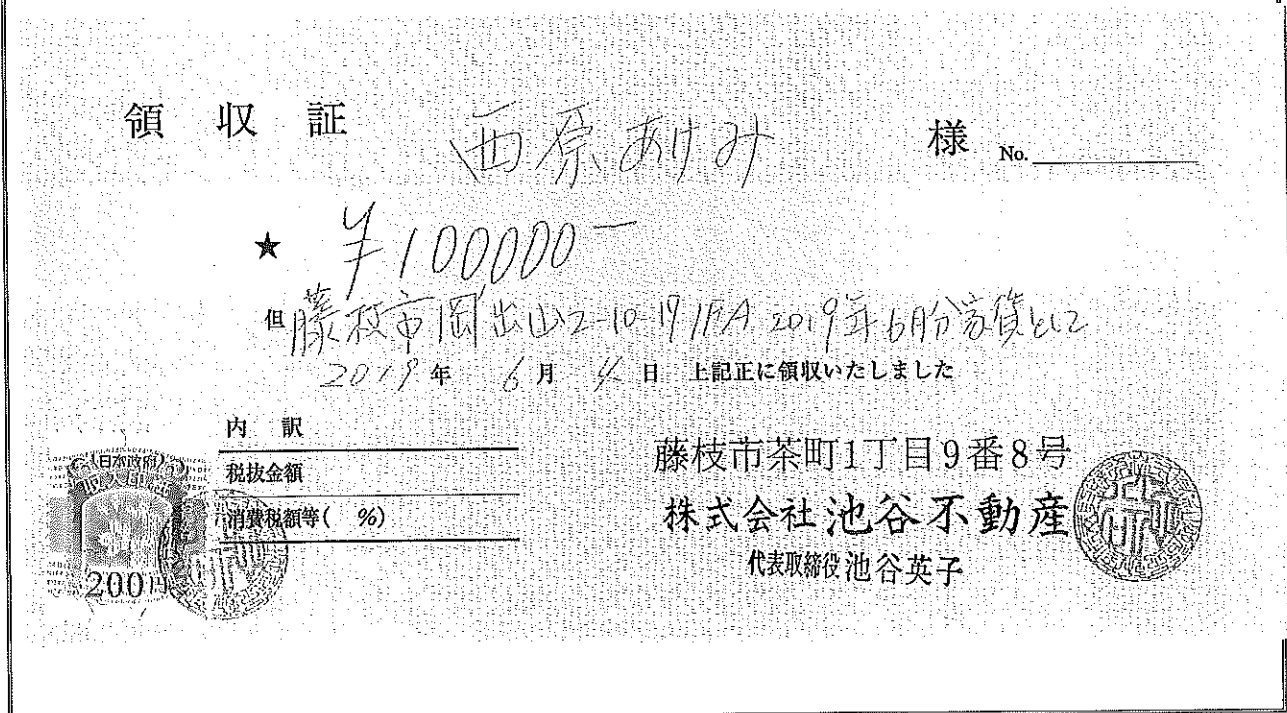 領収証 西原あけみ 様 No.
★ ¥100000-
但 藤枝市岡出山2-10-17 1FA 2019年6月分家賃として
2019年 6月 4日 上記正に領収いたしました
内訳
税抜金額
消費税額等( %)
日本政府
収入印紙
200円
藤枝市茶町1丁目9番8号
株式会社池谷不動産
代表取締役 池谷英子